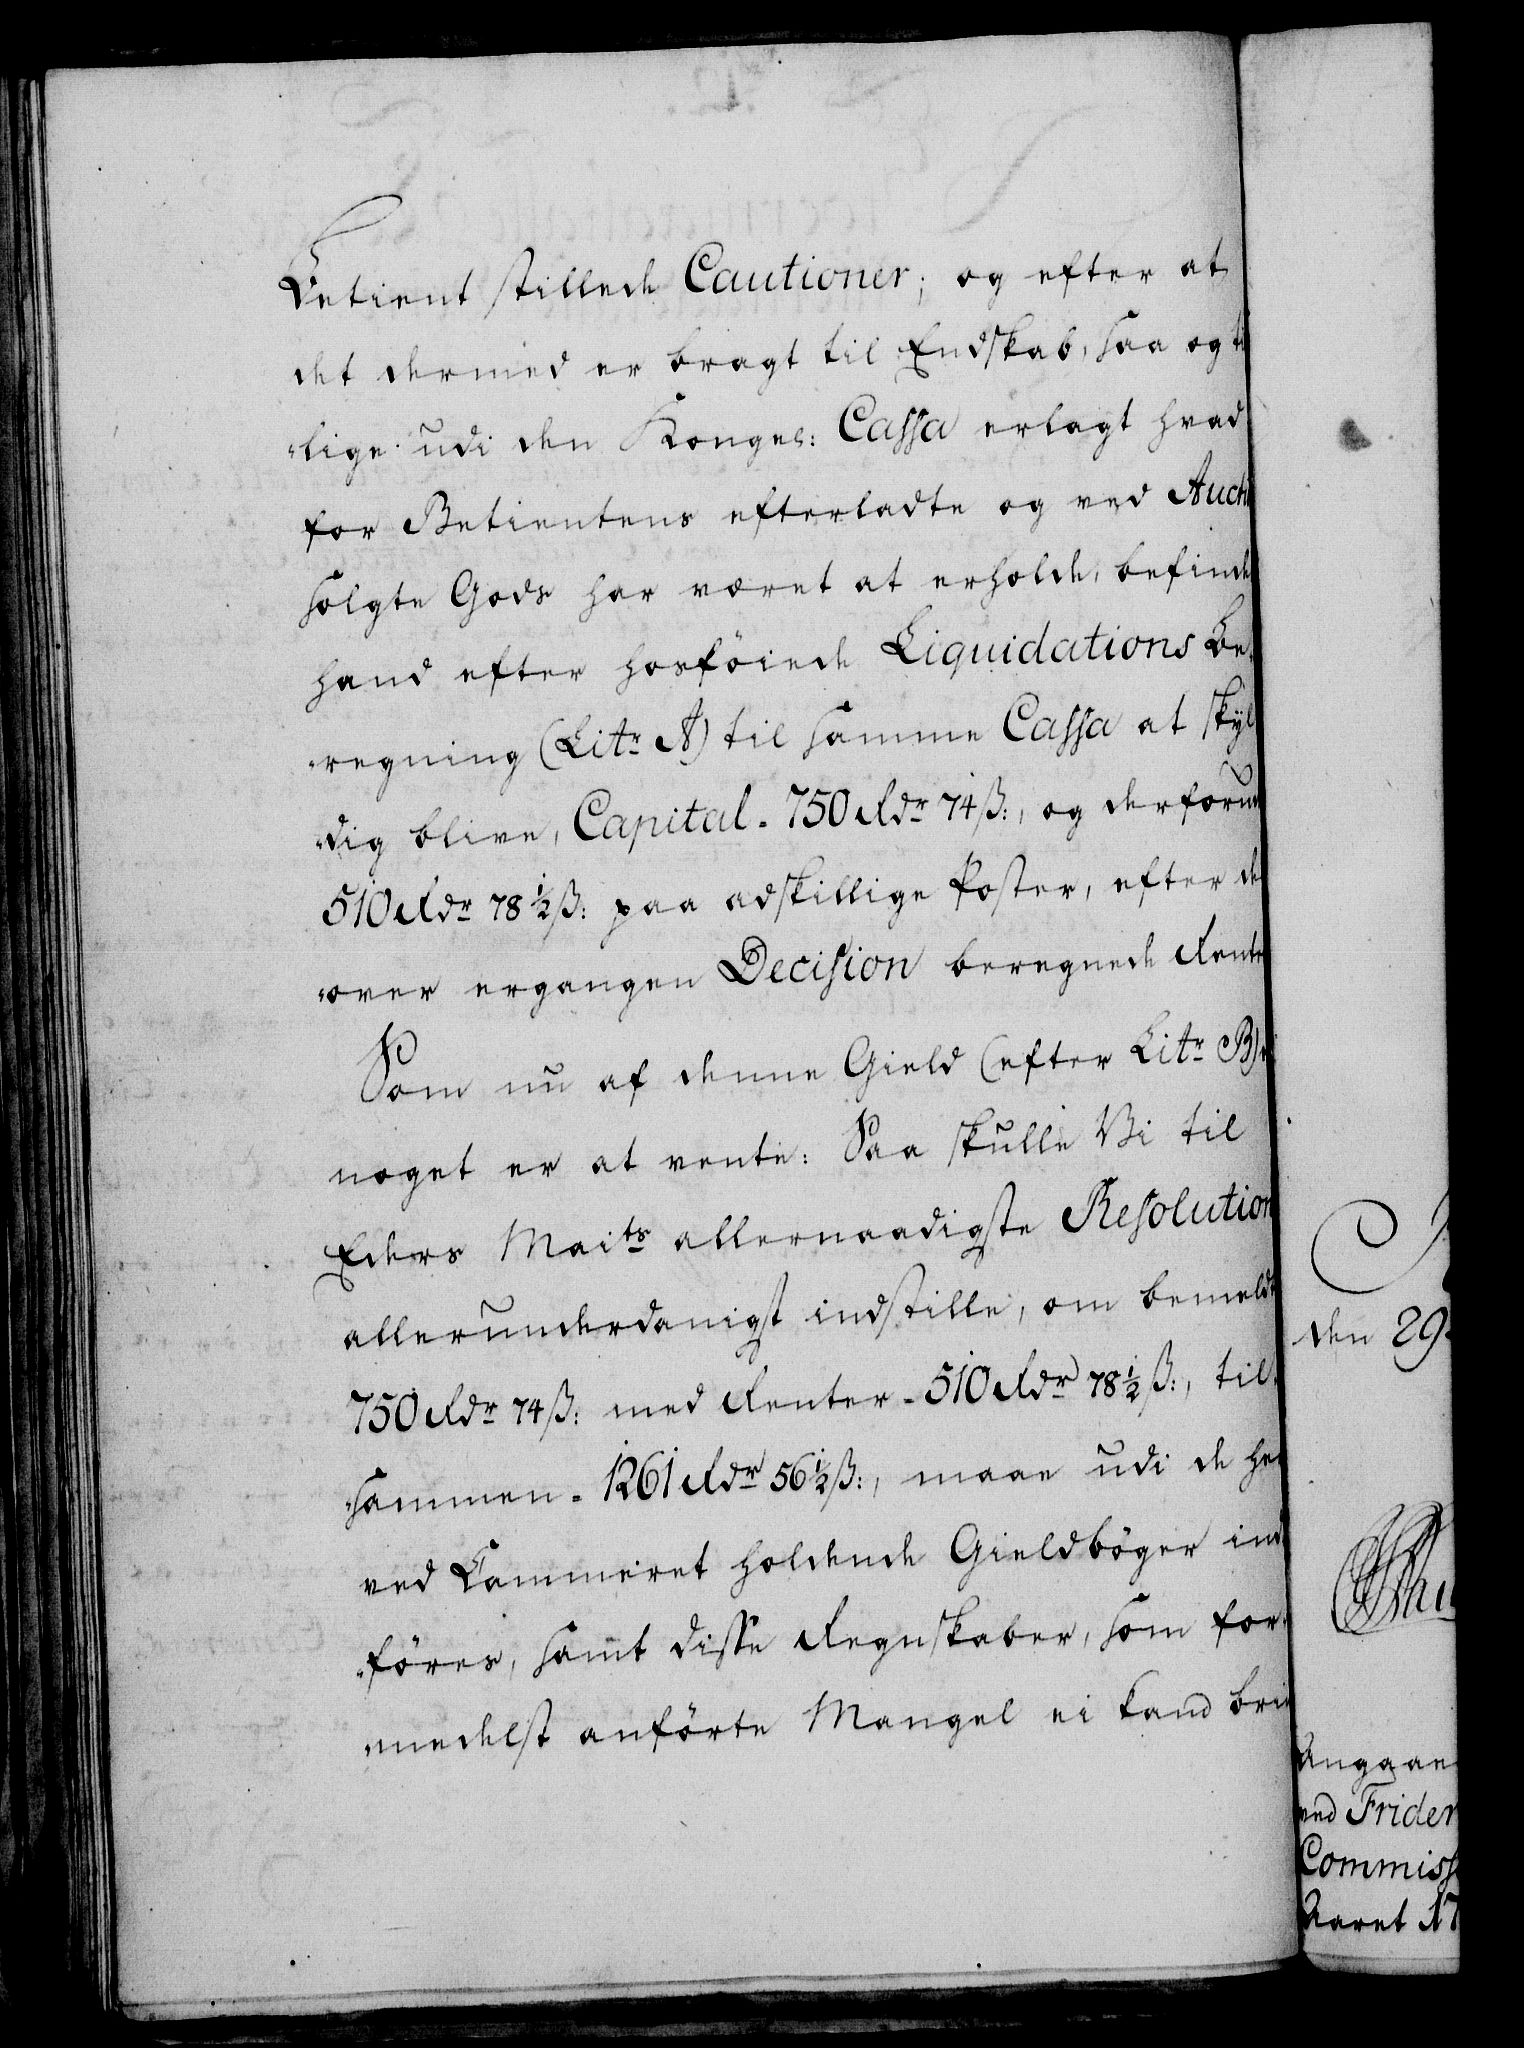 Betient stillede Cautioner; og efter at
det dermed er bragt til Endskab, saa og ti
-lige udi den Kongel: Cassa erlagt hvad
for Betientens efterladte og ved Aucti
solgte Gods har været at erholde, befinde
hand efter hosföiede Liquidations Be-
-regning (Litr A) til samme Cassa at skyl
-dig blive, Capital - 750 Rdr 74 ß:, og derforud
510 Rdr 78 1/2 ß: paa adskillige Poster, efter de
-over ergangen Decision beregnede Rente
Som nu af denne Gield (efter Litr B)
noget er at vente: Saa skulle Vi til
Eders Maits allernaadigste Resolution
allerunderdanigst indstille, om bemeldt
750 Rdr 74 ß: med Renter - 510 Rdr 78 1/2 ß:, til-
-sammen - 1261 Rdr 56 1/2 ß:, maae udi de her
ved Cammeret holdende Gieldböger ind
-föres, samt disse Regnskaber, som for-
-medelst anförte Mangel ei kand bri
den 29
Angaae
ved Frider
Commiss
Aaret 17